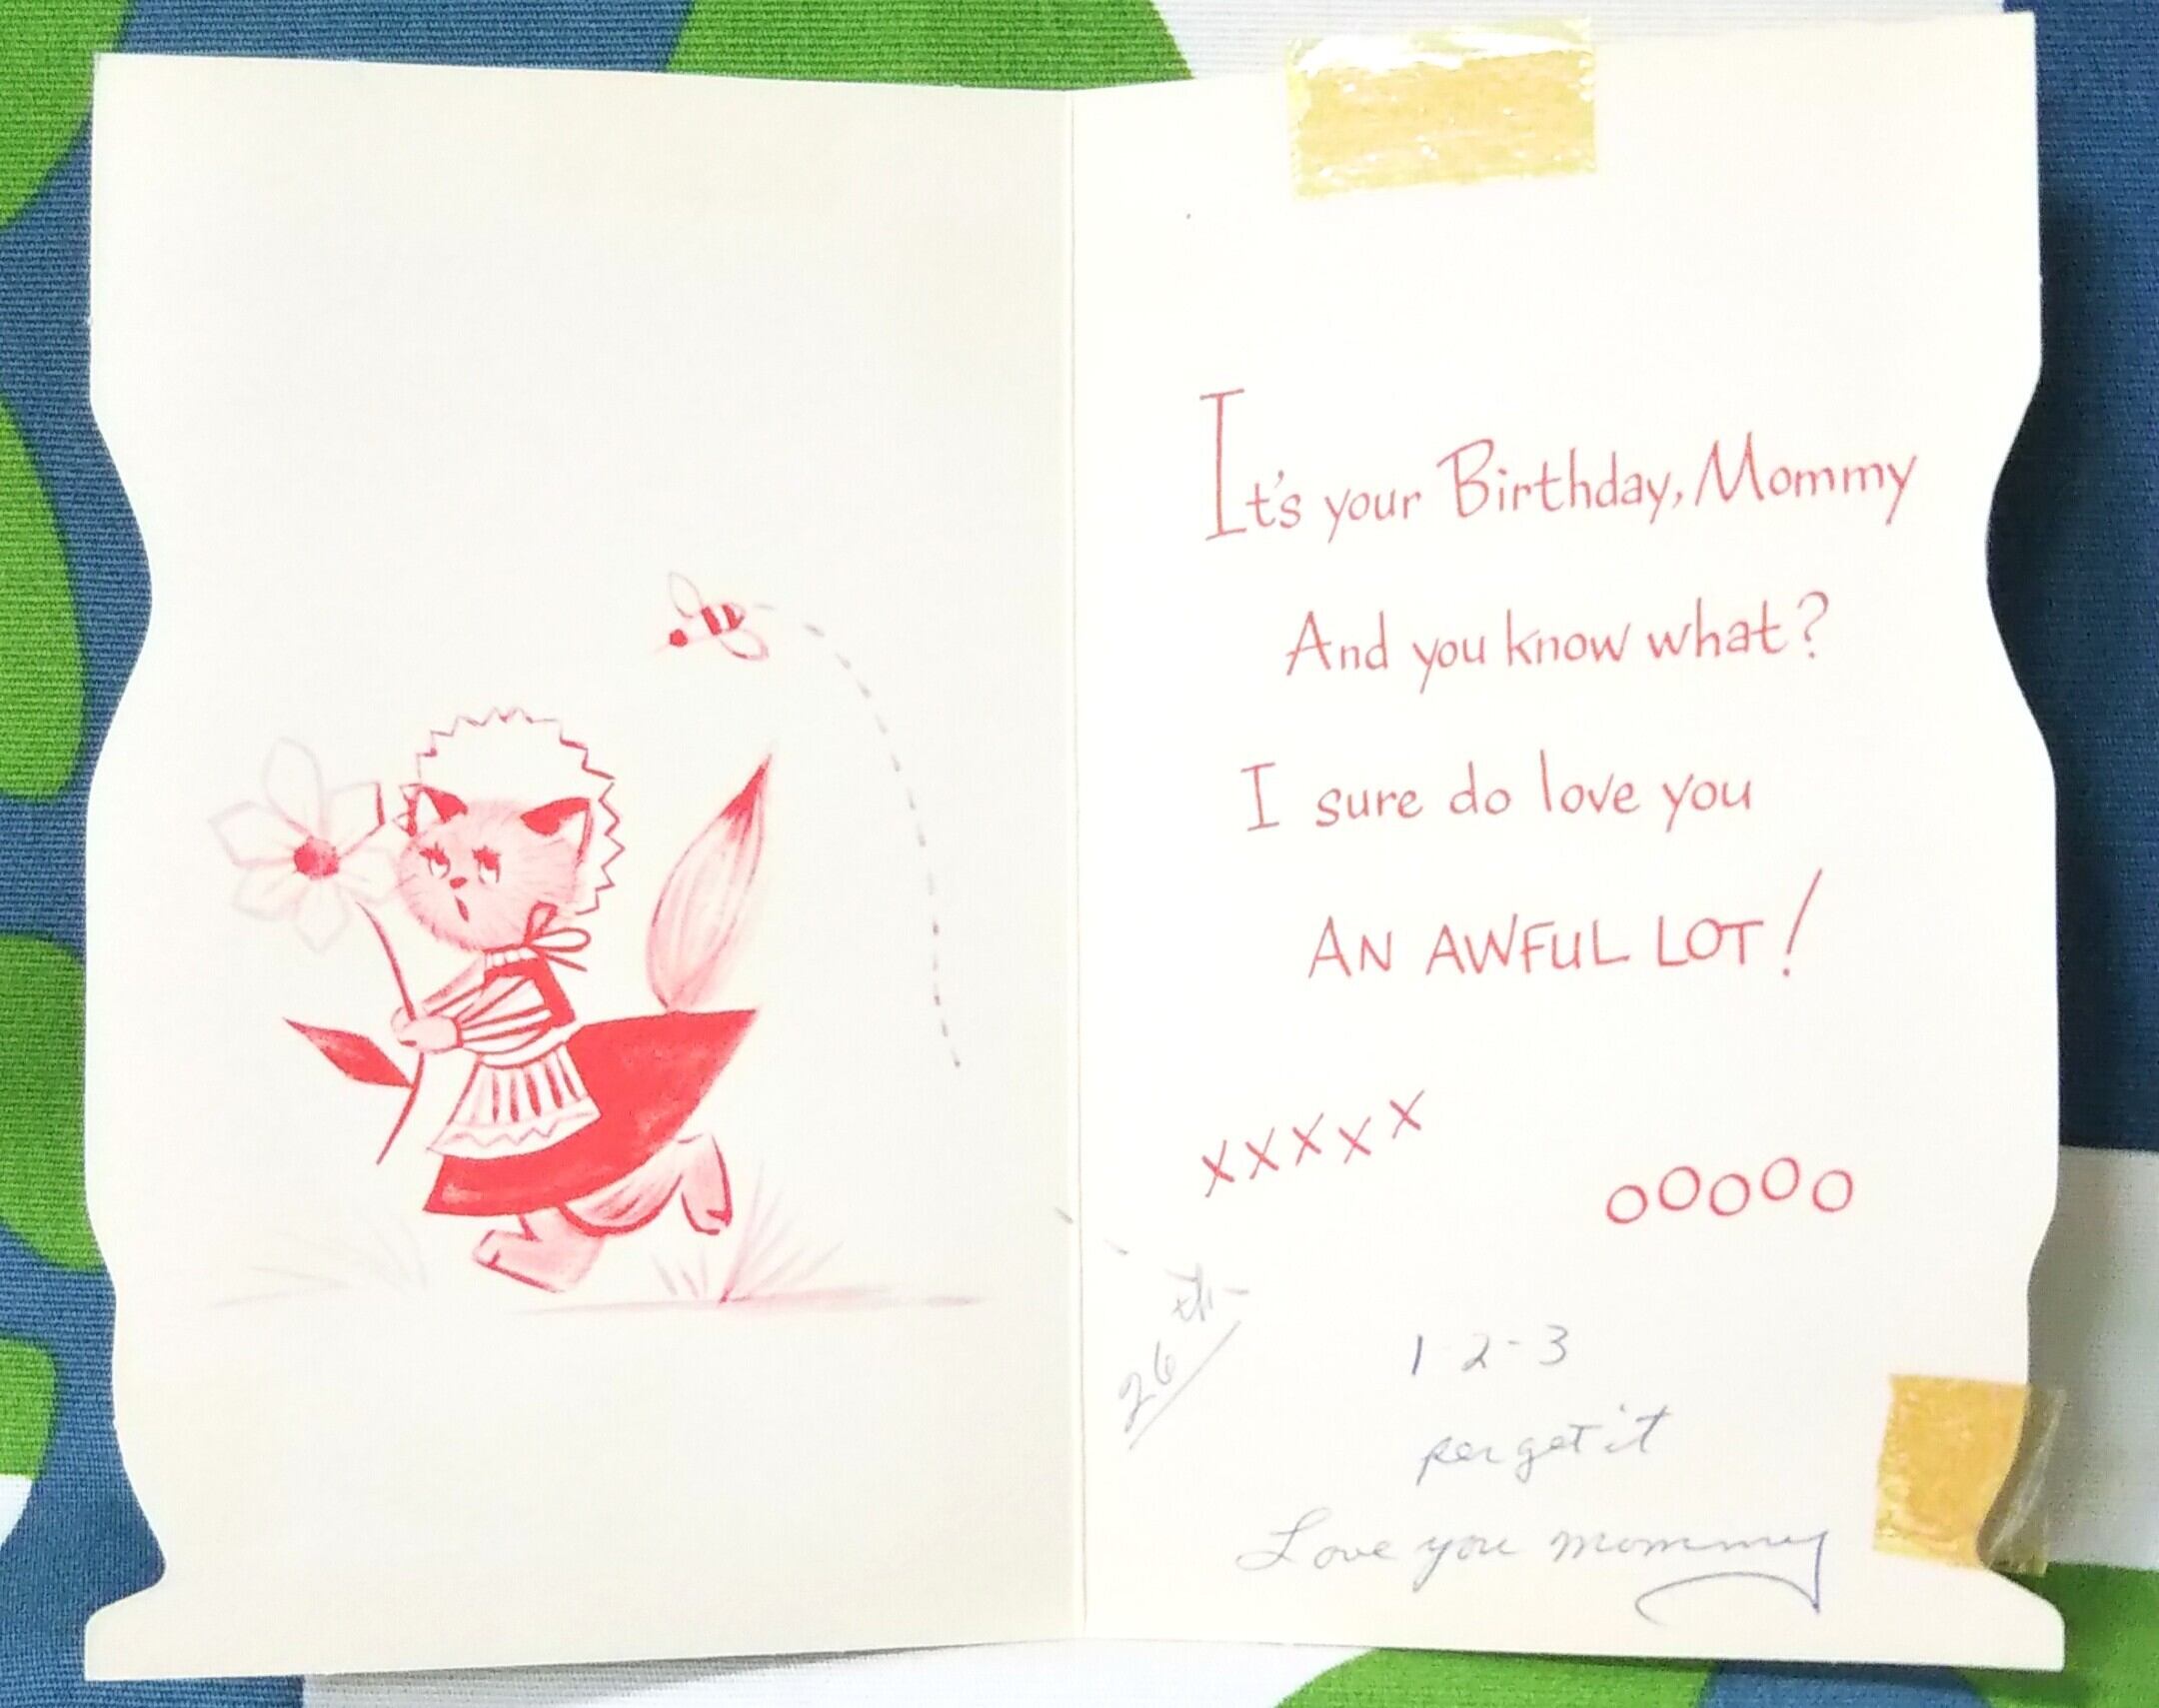 It's your Birthday, Mommy
And you know what?
I sure do love you
AN AWFUL LOT!
xxxxx
ooooo
26th
1-2-3
get it
Love you mommy